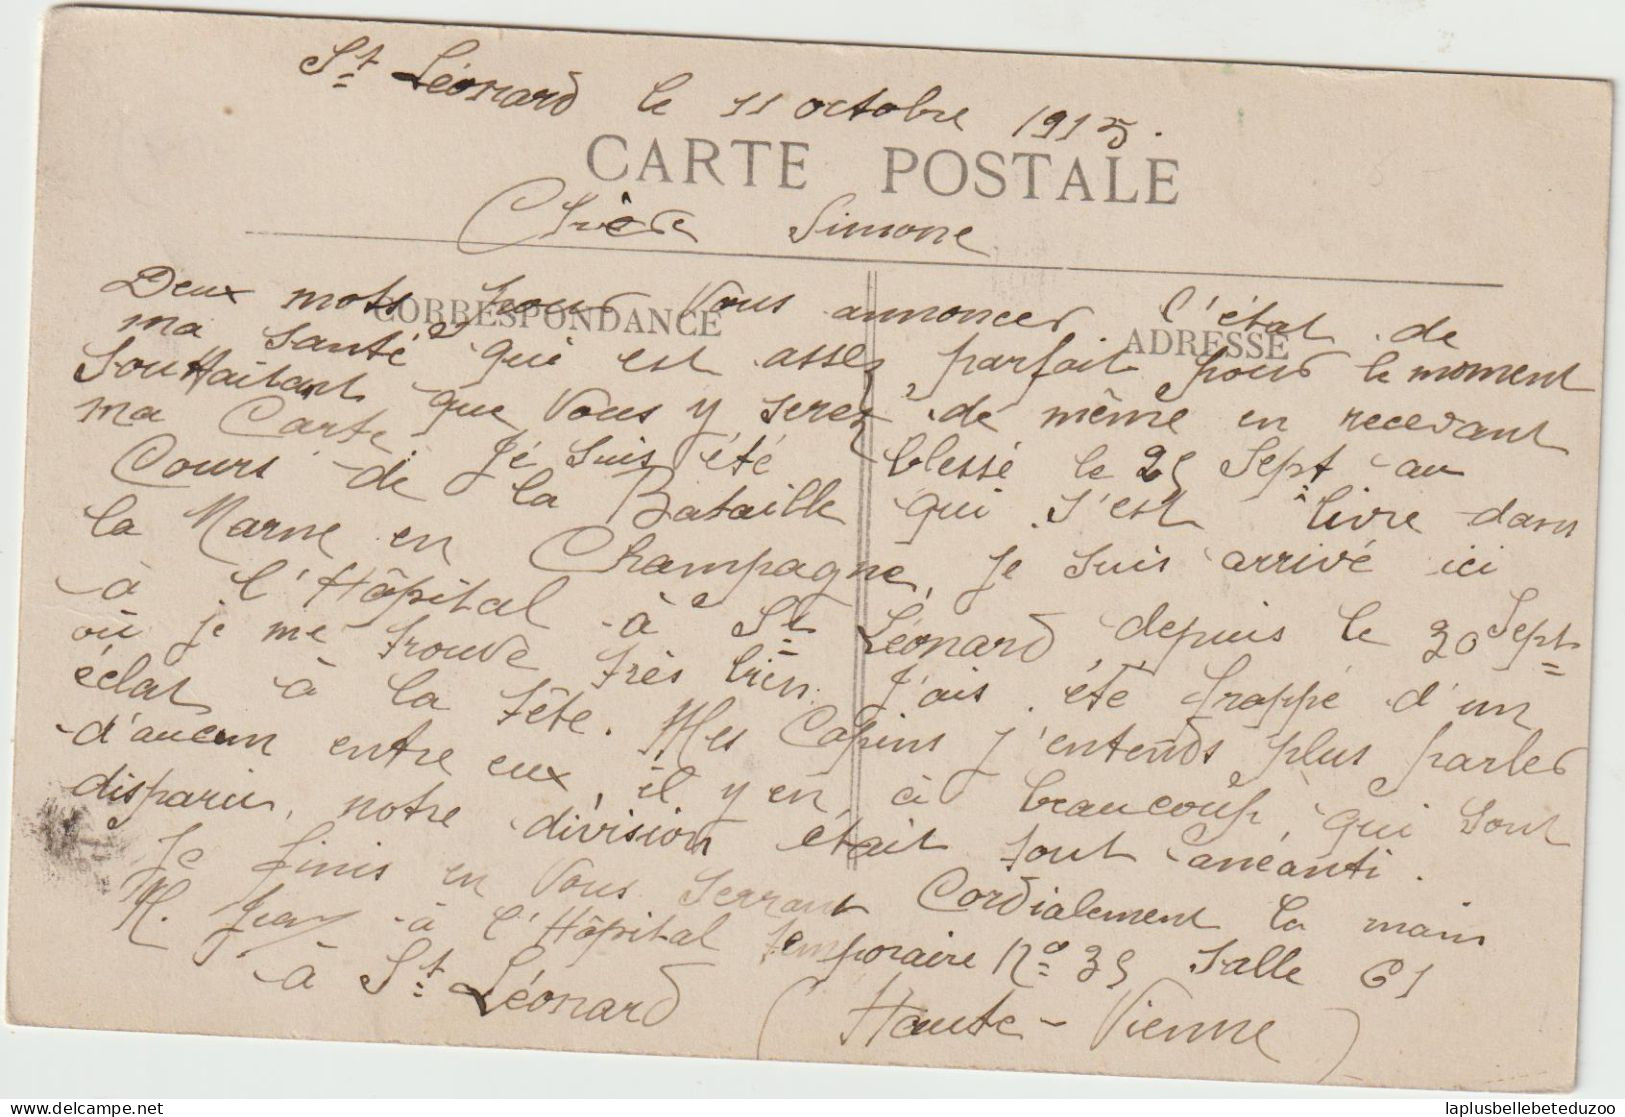 St Léonard le 11 octobre 1915.
CARTE POSTALE
Chère Simone
CORRESPONDANCE
ADRESSE
Deux mots pour Vous annoncer l'état de
ma santé qui est assez parfait pour le moment
Souhaitant que Vous y serez de même en recevant
ma Carte. Je suis été blessé le 25 Sept au
Cours de la Bataille qui s'est livre dans
la Marne en Champagne, Je suis arrivé ici
à l'Hôpital à St Léonard depuis le 30 Sept
où je me trouve très bien. J'ais été frappé d'un
éclat à la tête. Mes Copins j'entends plus parler
d'aucun entre eux, il y en à beaucoup, qui sont
disparus, notre division était tout anéanti.
Je finis en Vous serrant Cordialement la main
M. Jean à l'Hôpital temporaire No 35 Salle 61
à St Léonard (Haute-Vienne)
laplusbellebeteduzoo